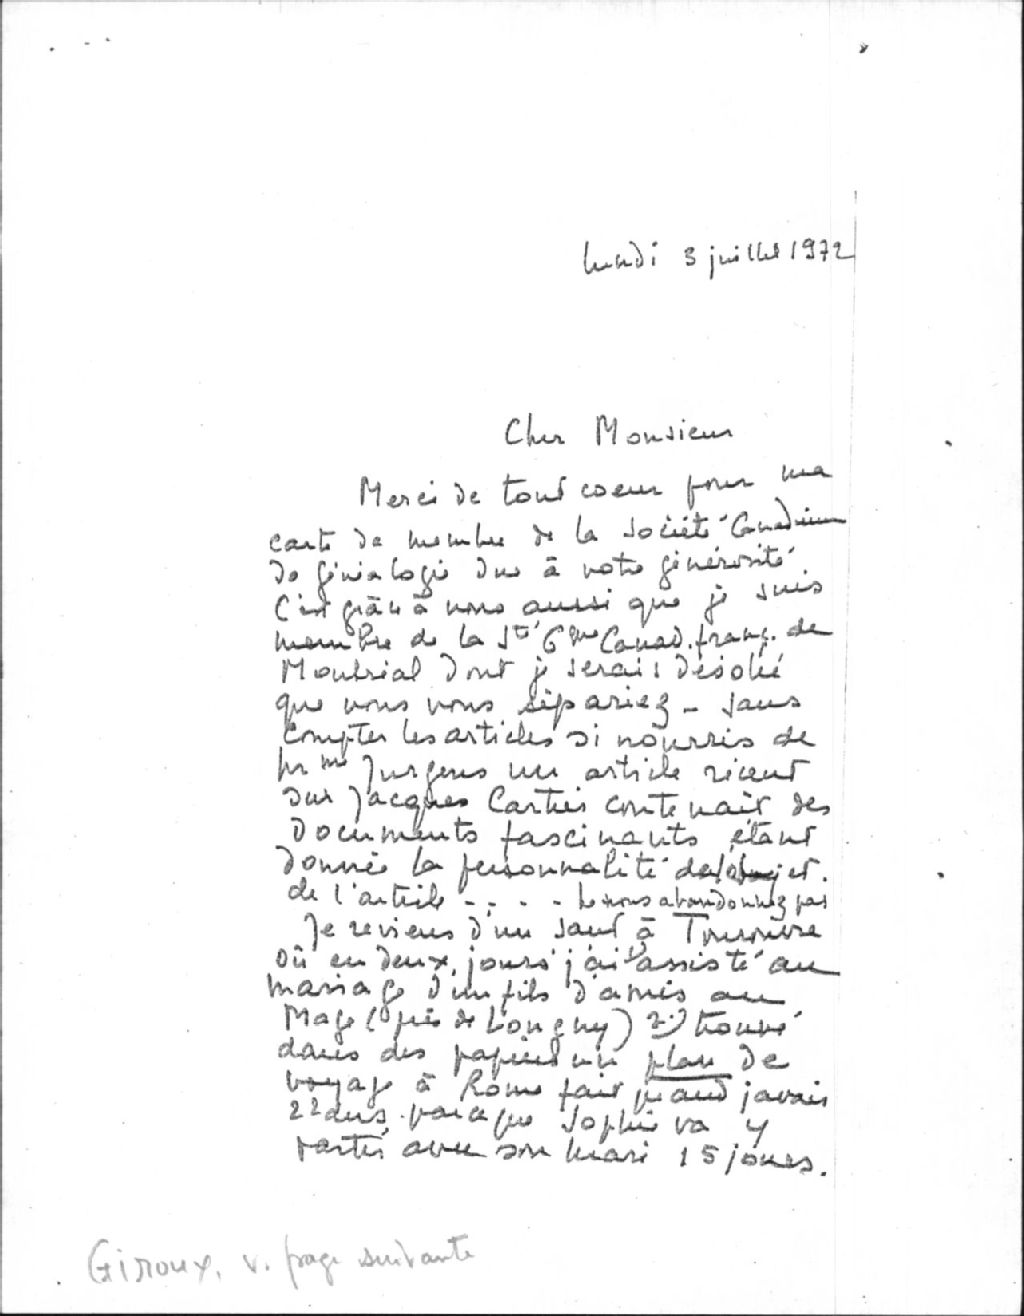 lundi 3 juillet 1972
Cher Monsieur
Merci de tout coeur pour ma
carte de membre de la Société Canadienne
de généalogie due à votre générosité
C'est grâce à vous aussi que je suis
membre de la Sté Gme Canad. franç. de
Montréal dont je serais désolée
que vous vous sépariez - sans
compter les articles si nourris de
Mme Jurgens un article récent
sur Jacques Cartier contenait des
documents fascinants étant
donnée la personnalité de
de l'article - . . . - Ne nous abandonnez pas
Je reviens d'un saut à Tourouvre
où en deux jours j'ai 1) assisté au
mariage d'un fils d'amis au
Mage (près de Longny) 2) trouvé
dans des papiers un plan de
voyage à Rome fait quand j'avais
22 ans parce que Sophie va y
partir avec son mari 15 jours.
Giroux, v. page suivante